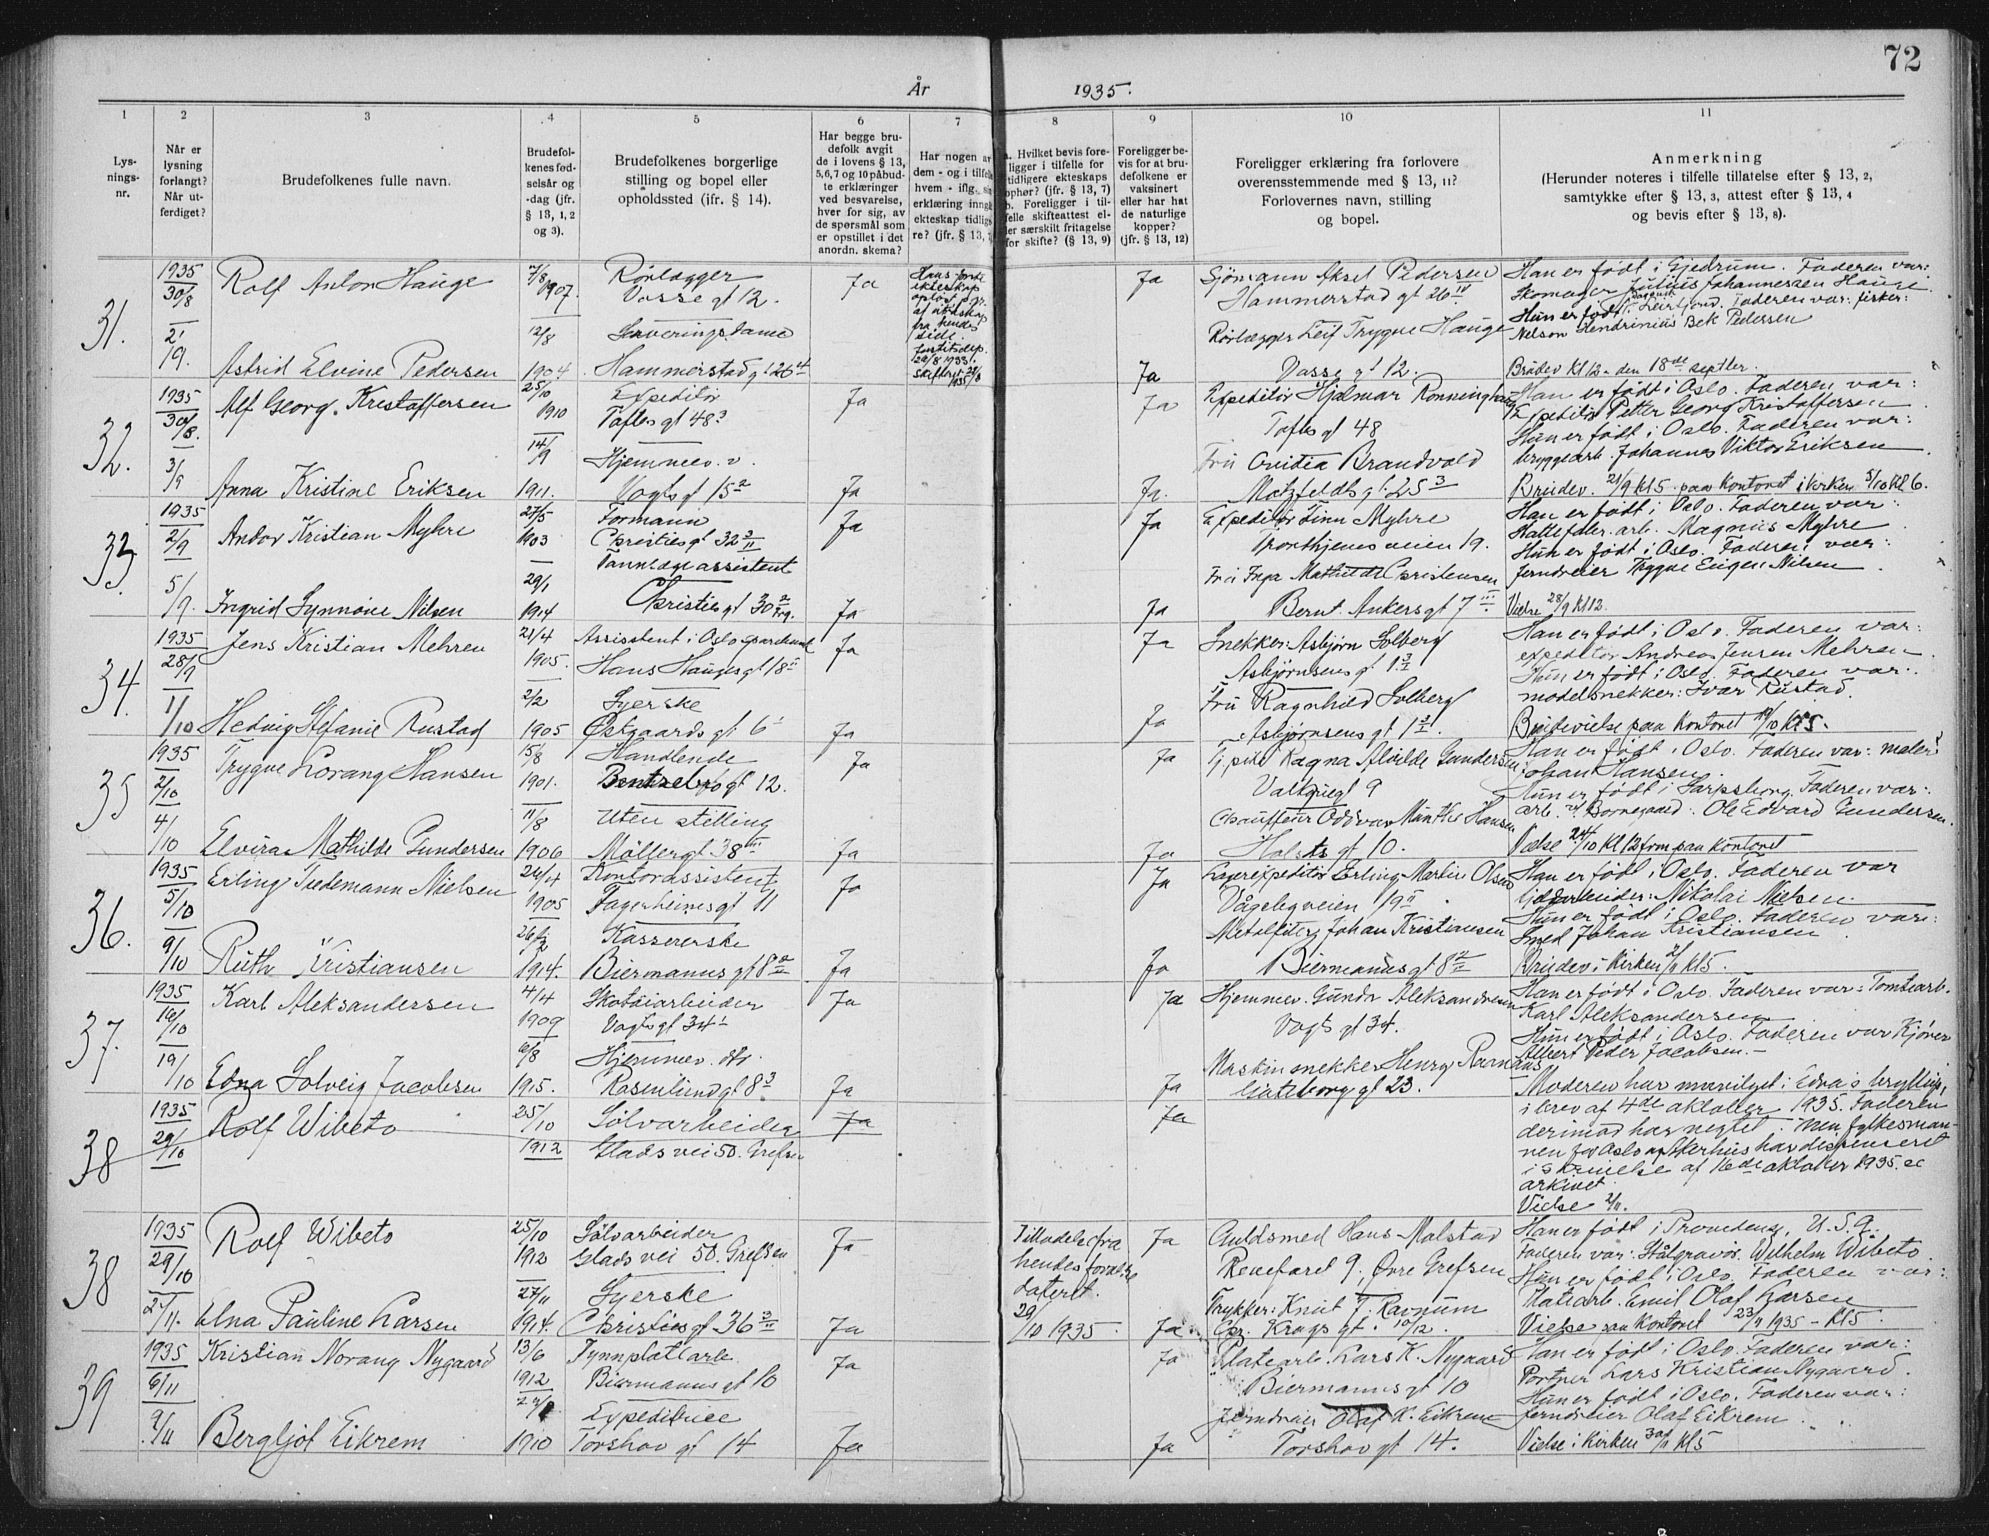 72
År 1935.
1
2
3
4
5
6
7
8
9
10
11
Lys-
nings-
nr.
Når er
lysning
forlangt?
Når ut-
ferdiget?
Brudefolkenes fulle navn.
Brudefol-
kenes fød-
selsår og
-dag (jfr.
§ 13, 1, 2
og 3).
Brudefolkenes borgerlige
stilling og bopel eller
opholdssted (ifr. § 14).
Har begge bru-
defolk avgit
de i lovens § 13,
5,6,7 og 10 påbud-
te erklæringer
ved besvarelse,
hver for sig, av
de spørsmål som
er opstillet i det
anordn. skema?
Har nogen av
dem - og i tilfelle
hvem - iflg.
erklæring inngå
ekteskap tidlig
re? (jfr. § 13,
a. Hvilket bevis fore-
ligger i tilfelle for
tidligere ekteskaps
ophør? (jfr. § 13, 7)
b. Foreligger i til-
felle skifteattest el-
ler særskilt fritagelse
for skifte? (§ 13, 9)
Foreligger be-
vis for at bru-
defolkene er
vaksinert
eller har hat
de naturlige
kopper?
(jfr. § 13, 12)
Foreligger erklæring fra forlovere
overensstemmende med § 13, 11?
Forlovernes navn, stilling
og bopel.
Anmerkning
(Herunder noteres i tilfelle tillatelse efter § 13, 2,
samtykke efter § 13, 3, attest efter § 13, 4
og bevis efter § 13, 8).
31.
1935
30/8
21/9.
Rolf Anton Hauge
7/8 1907.
Rørlægger
Vosse gt 12.
Ja
Ja
Sjømann Aksel Pedersen
Hammerstad gt 26 IV
Han er født i Gjedrum. Faderen var:
Skomager Julius Johannessen Hauge
Faderen var: fisker:
Hendrinius Bek Pedersen
Astrid Elvine Pedersen
12/8
1904
Serveringsdame
Hammerstad gt 26
Rørlægger Leif Trygve Hauge
Vosse gt 12.
Ja
Brudev kl 12 - den 18de septbr.
32.
1935
30/8.
3/9
Alf Georg Kristoffersen
25/10
1910
Expeditør
Toftes gt 48 3
Ja
Ja
Expeditør Hjalmar Rønninghaug
Toftes gt 48
Han er født i Oslo. Faderen var:
Expeditør Petter Georg Kristoffersen
Hun er født i Oslo. Faderen var:
bryggearb. Johannes Viktor Eriksen
Anna Kristine Eriksen
14/9
1911.
Hjemmev. v.
Vogts gt 15 2
Ja
Ja.
Fru Ovidia Brandvold
Motzfeldts gt. 25 3
Brudev. 21/9 kl 5. paa Kontoret i kirken 5/10 kl 6.
33.
1935
2/9
5/9.
Andor Kristian Myhre
27/5
1903
Formann
Christies gt 32 3/II
Ja
Ja
Expeditør Finn Myhre
Trondhjems veien 19.
Han er født i Oslo. Faderen var:
Hattefabr. arb. Magnus Myhre
Hun er født i Oslo. Faderen var:
Jerndreier Trygve Eugen Nilsen
Ingrid Synnøve Nilsen
29/1
1914
Tannlægeassistent
Christies gt 30 2
Ja
Ja
Fru Inga Mathilde Christensen
Bernt Ankers gt 7 III
Vielse 28/9 kl 12.
34.
1935
28/9
1/10
Jens Kristian Mehren
21/4
1905.
Assistent i Oslo sparebank
Hans Hauges gt 18 II
Ja
Ja
Snekker: Asbjørn Solberg
Asbjørnsens gt 1
Han er født i Oslo. Faderen var:
expeditør Andreas Jensen Mehren
Hun er født i Oslo. Faderen var:
modelsnekker: Ivar Rustad.
Hedvig Stefanie Rustad
2/2
1905
Syerske
Østgaards gt 6
Ja
Ja
Fru Ragnhild Solberg
Asbjørnsens gt 1
Brudevielse paa Kontoret kl 5.
35
1935
2/10
4/10
Trygve Lorang Hansen
15/8
1901.
Handlende
Bentsebro gt 12.
Ja
Ja
Ragna Alvilde Gundersen
gt 9
Han er født i Oslo. Faderen var: maler
Johan Hansen
Hun er født i Sarpsborg. Faderen var:
arb. v/ Borregaard. Ole Edvard Gundersen.
Elvira Mathilde Gundersen
11/8
1906
Uten stilling
Møllergt 38 III
Ja
Ja
Chauffeur Oddvar Münther Hansen
Holsts gt 10.
Vielse 24/10 kl 12 form paa Kontoret
36.
1935
5/10
9/10
Erling Tiedemann Nielsen
24/4
1905
Kontorassistent
Fagerheims gt 11
Ja
Ja
Lagerexpeditør Erling Martin Olsen
Vågebyveien 19 II
Han er født i Oslo. Faderen var
Gullarbeider: Nikolai Nielsen
Hun er født i Oslo. Faderen var:
Smed Johan Kristiansen
Ruth Kristiansen
1914.
Kassererske
Biermanns gt 8
Ja
Ja
Johan Kristiansen
Biermanns gt 8
Brudev i Kirken 2/11 kl 5.
37.
1935
16/10
19/10
Karl Aleksandersen
4/4
1909
Skotøiarbeider
Vogts gt 34
Ja
Ja
Hjemmev. Gunda Aleksandersen
Vogts gt 34.
Han er født i Oslo. Faderen var: Tomtearb.
Karl Aleksandersen
Hun er født i Oslo. Faderen var Kjører
Albert Peder Jacobsen. -
Edna Solveig Jacobsen
6/8
1915.
Hjemmev. dtr.
Rosenlund gt 8 3
Ja
Ja
Maskinsnekker Henry Ravnaas
Gøteborg gt 23.
Moderen har samtykket i Edna's bryllup,
i brev af 4de oktober 1935. Faderen
derimod har negtet. Men fylkesman-
nen for Oslo og Akerhus har dispenseret
i skrivelse af 16de oktober 1935. se
arkivet.
Vielse 2/11.
38
1935
29/10
Rolf Wibeto
25/10
1912
Sølvarbeider
Glads vei 50. Grefsen
Ja
Ja
38
1935
29/10
2/11.
Rolf Wibeto
25/10
1912
Sølvarbeider
Glads vei 50. Grefsen
Ja
Tilladelse fra
hendes forældre
dateret
29/10 1935.
Ja
Guldsmed Hans Malstad
Revefaret 9. Øvre Grefsen
Han er født i Providens, U.S.A.
Faderen var: Stålgravør. Wilhelm Wibeto
Hun er født i Oslo. Faderen var:
Platearb. Emil Olaf Larsen
Elna Pauline Larsen
27/11
1914.
Syerske
Christies gt 36 3/II
Ja
Ja.
Trykker: Knut J. Ravnum
Krags gt.
Vielse paa Kontoret 23/11 1935 - kl 5.
39
1935
6/11
9/11
Kristian Norang Nygaard
13/6
1912
Tynnplatearb.
Biermanns gt 10
Ja
Ja
Platearb. Lars K. Nygaard
Biermanns gt 10
Han er født i Oslo. Faderen var:
Portner Lars Kristian Nygaard.
Hun er født i Oslo. Faderen var:
Jerndreier Olaf Eikrem
Bergljot Eikrem
1910
Expeditrice
Torshov gt 14
Ja
Ja
Jerndreier Olaf K. Eikrem
Torshov gt 14.
Vielse i Kirken 30/11 kl 5